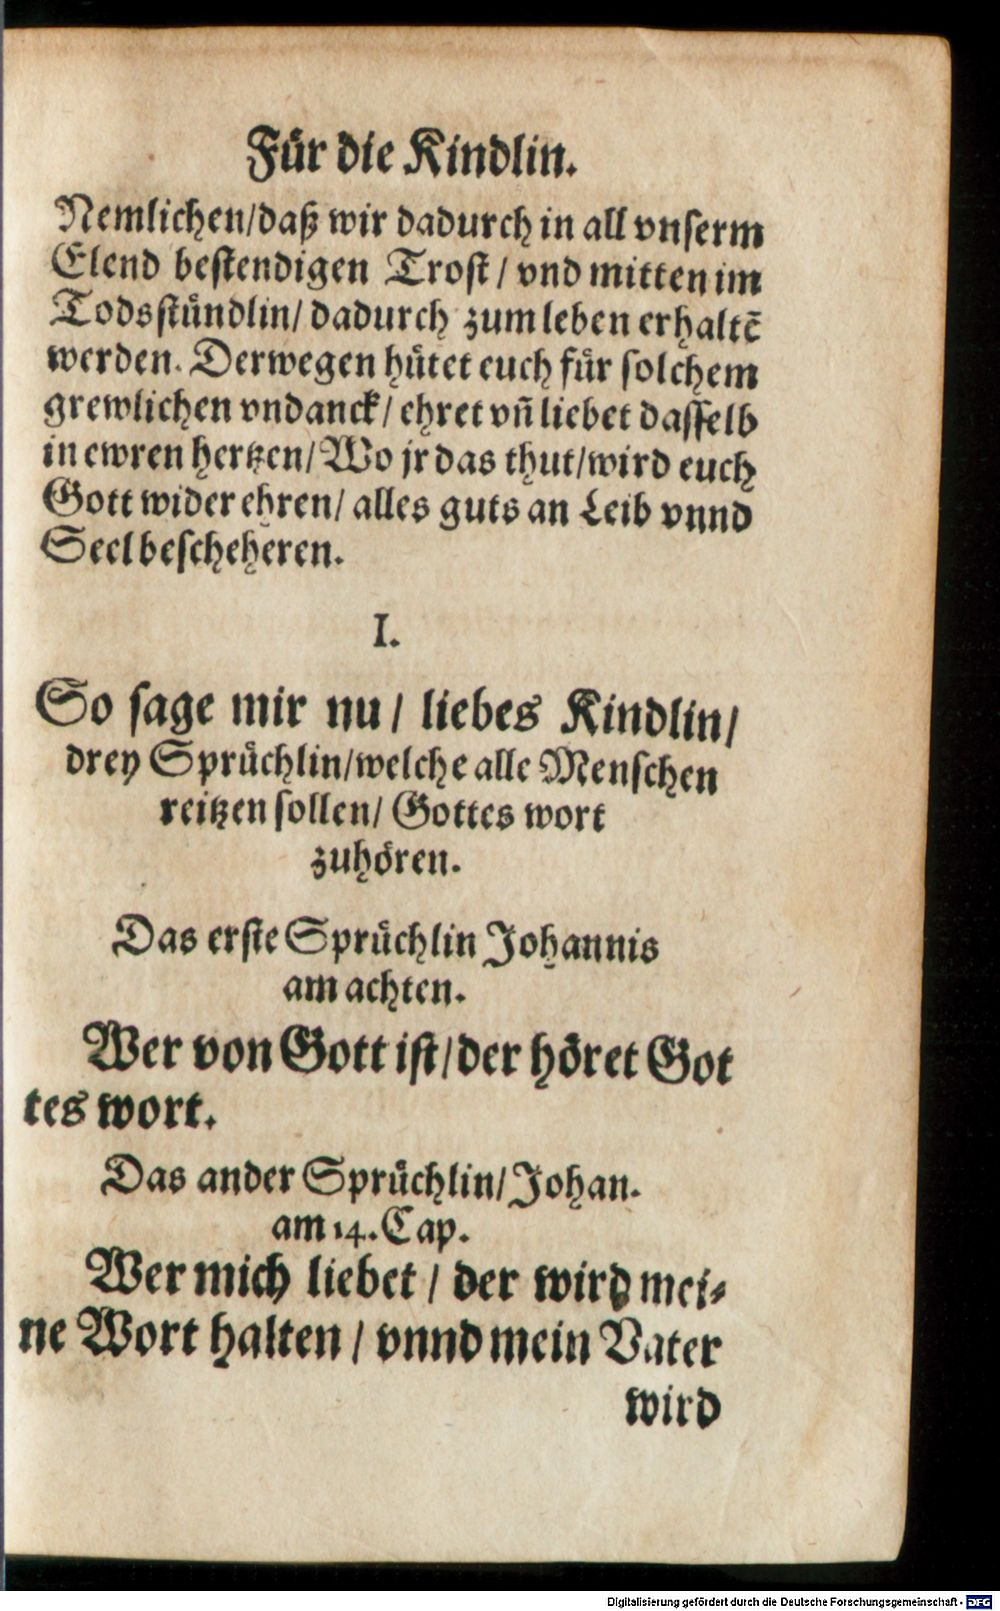 Für die Kindlin.
Nemlichen/daß wir dadurch in all vnserm
Elend bestendigen Trost/ vnd mitten im
Todsstündlin/ dadurch zum leben erhaltē
werden. Derwegen hütet euch für solchem
grewlichen vndanck/ ehret vñ liebet dasselb
in ewren hertzen/ Wo jr das thut/wird euch
Gott wider ehren/ alles guts an Leib vnnd
Seel bescheheren.
I.
So sage mir nu/ liebes Kindlin/
drey Sprüchlin/welche alle Menschen
reitzen sollen/ Gottes wort
zuhören.
Das erste Sprüchlin Johannis
am achten.
Wer von Gott ist/der höret Got
tes wort.
Das ander Sprüchlin/ Johan.
am 14. Cap.
Wer mich liebet/ der wird mei⸗
ne Wort halten/ vnnd mein Vater
wird
Digitalisierung gefördert durch die Deutsche Forschungsgemeinschaft - DFG